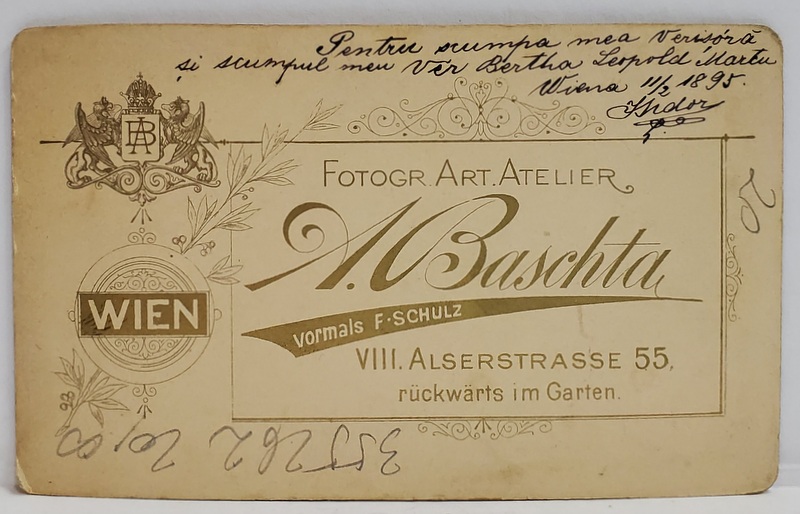 Pentru scumpa mea verișóră
și scumpul meu Vĕr Bertha Leopold Martu
Wiena 11/2 1895.
Isidor
AB
FOTOGR. ART. ATELIER
A. Baschta
WIEN
vormals F. SCHULZ
VIII. ALSERSTRASSE 55,
rückwärts im Garten.
20